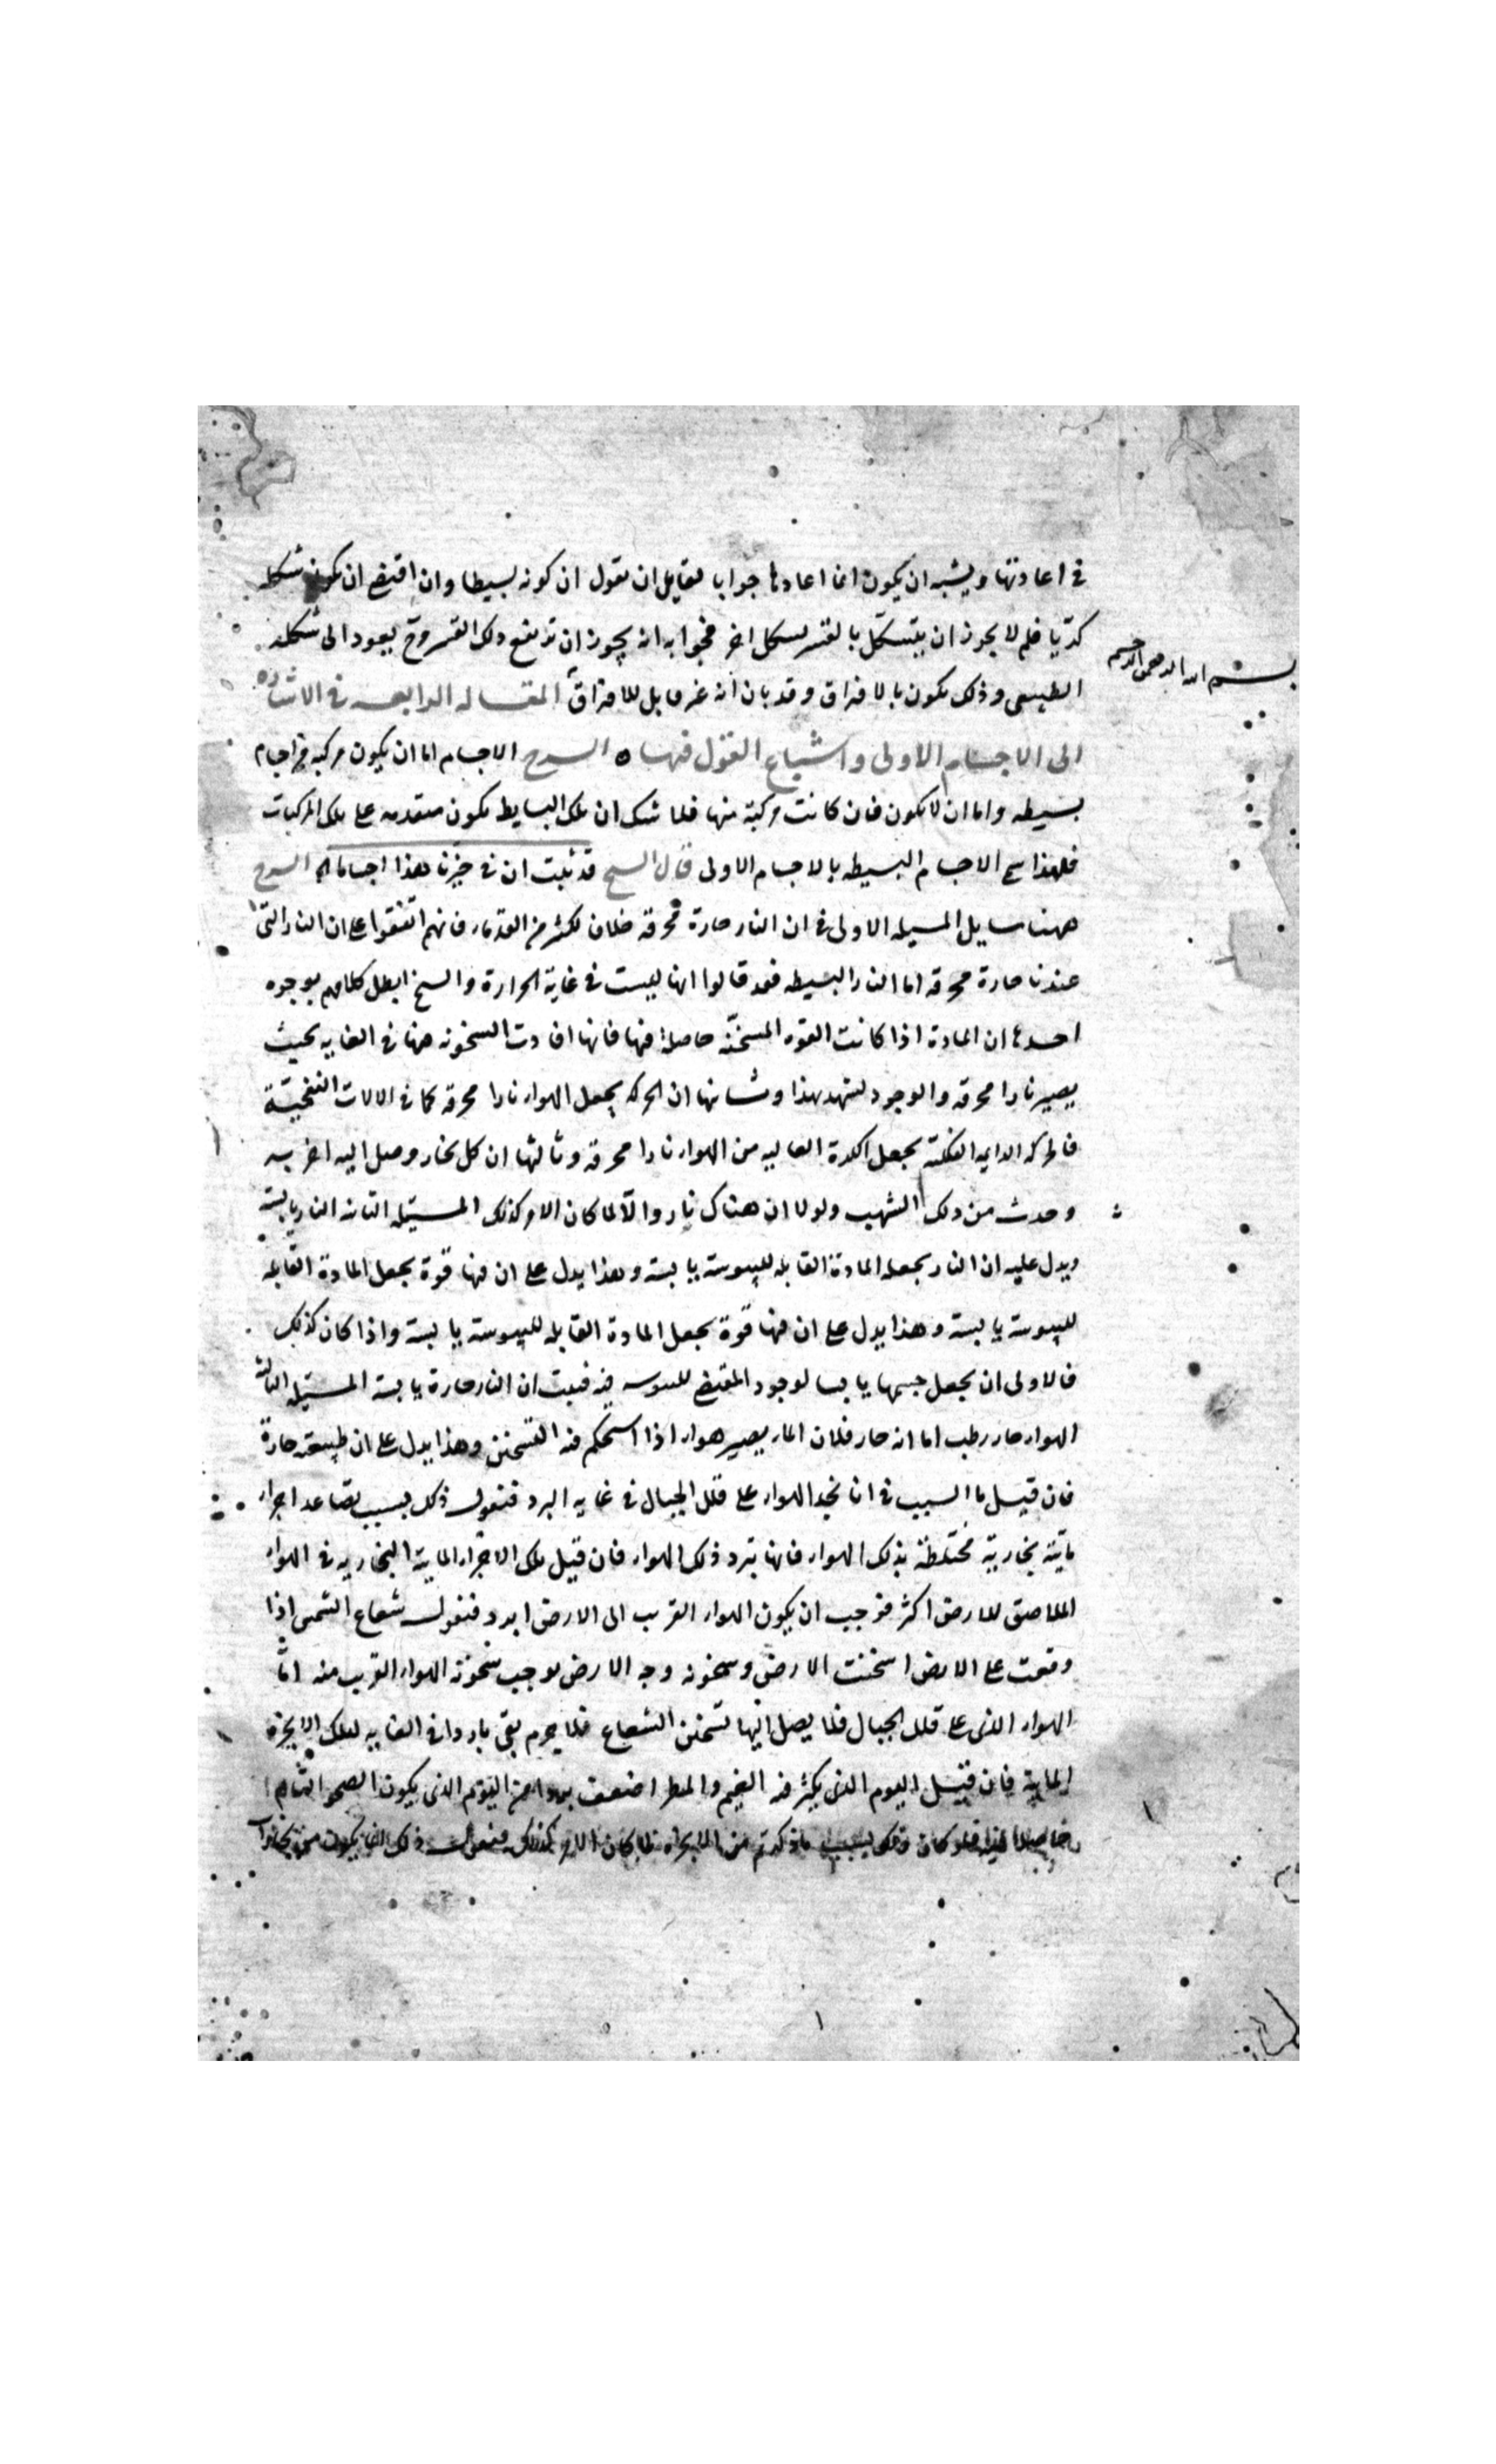 في اعادتها ويشبه ان يكون انما اعادها جوابا لقايل ان يقول ان كونه بسيطا وان اقتضى ان يكون شكله
كريا فلم لا يجوز ان يتشكل بالقسر لشكل اخر فجوابه انه يجوز ان يرتفع ذلك القسر وح يعود الى شكله
بسم الله الرحمن الرحيم
الطبيعى وذلك يكون بالافتراق وقد بان انه غير قابل للافتراق المقاله الرابعه في الاشاره
الى الاجسام الاولى واشباع القول فيها ه الشرح الاجسام اما ان يكون مركبه من اجسام
بسيطه واما ان لا يكون فان كانت مركبة منها فلا شك ان تلك البسايط يكون متقدمه على تلك المركبات
فلهذا سمى الاجسام البسيطه بالاجسام الاولى قال الشيخ قد ثبت ان في حيزنا هذا اجساما الشرح
ههنا مسايل المسيله الاولى في ان النار حارة محرقه خلافا لكثير من القدماء فانهم اتفقوا على ان النار التى
عندنا حارة محرقه اما النار البسيطه فقد قالوا انها ليست في غاية الحرارة والشيخ ابطل كلامهم بوجوه
احدها ان المادة اذا كانت القوه المسخنة حاصلة فيها فانها افادت السخونه فيها في الغايه بحيث
يصير نارا محرقه والوجود يشهد بهذا وثانيها ان الحركه يجعل الهواء نارا محرقه كما في الالات النفخية
فالحركه الدايمه الفلكية يجعل الكرة العاليه من الهواء نارا محرقه وثالثها ان كل بخار وصل اليه احرقه
وحدث من ذلك الشهب ولولا ان هناك نار والا لما كان الامر كذلك المسئله الثانيه النار يابسة
ويدل عليه ان النار يجعل المادة القابله لليبوسة يابسة وهذا يدل على ان فيها قوة يجعل المادة القابله
لليبوسة يابسة وهذا يدل على ان فيها قوة يجعل المادة القابله لليبوسة يابسة واذا كان كذلك
فالاولى ان يجعل جسمها يابسا لوجود المقتضى لليبوسه فيه فثبت ان النار حارة يابسة المسئله الثالثة
الهواء حار رطب اما انه حار فلان الماء يصير هواء اذا استحكم فيه التسخن وهذا يدل على ان طبيعته حارة
فان قيل ما السبب في انا نجد الهواء على قلل الجبال في غايه البرد فنقول ذلك بسبب تصاعد اجزاء
مائية بخارية مختلطة بذلك الهواء فانها تبرد ذلك الهواء فان قيل تلك الاجزاء المائية البخاريه في الهواء
الملاصق للارض اكثر فوجب ان يكون الهواء القريب الى الارض ابرد فنقول شعاع الشمس اذا
وقعت على الارض اسخنت الارض وسخونه وجه الارض يوجب سخونة الهواء القريب منه اما
الهواء الذى على قلل الجبال فلا يصل اليها تسخين الشعاع فلا جرم بقى باردا في الغايه لتلك الابخرة
المايية فان قيل اليوم الذى يكثر فيه الغيم والمطر اضعف بردا من اليوم الذى يكون الصحو التام
حاصلا فيه فلو كان ذلك بسبب ما ذكرتم من الابخرة لما كان الامر كذلك فنقول ذلك